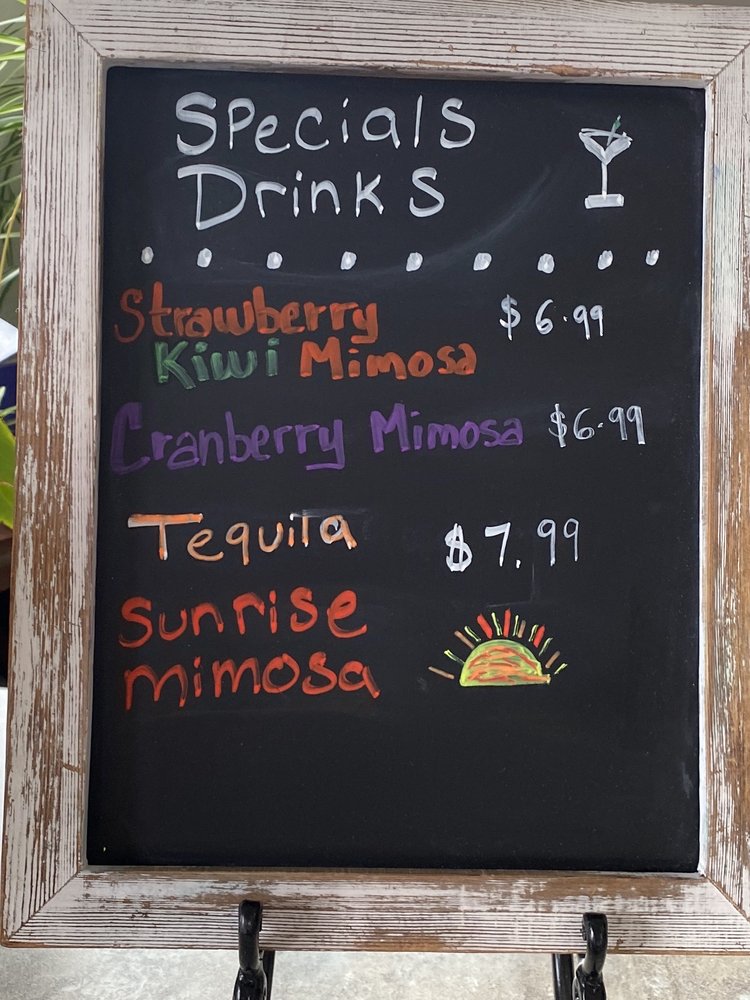 Specials
Drinks
Strawberry $6.99
Kiwi Mimosa
Cranberry Mimosa $6.99
Tequila $7.99
Sunrise
mimosa